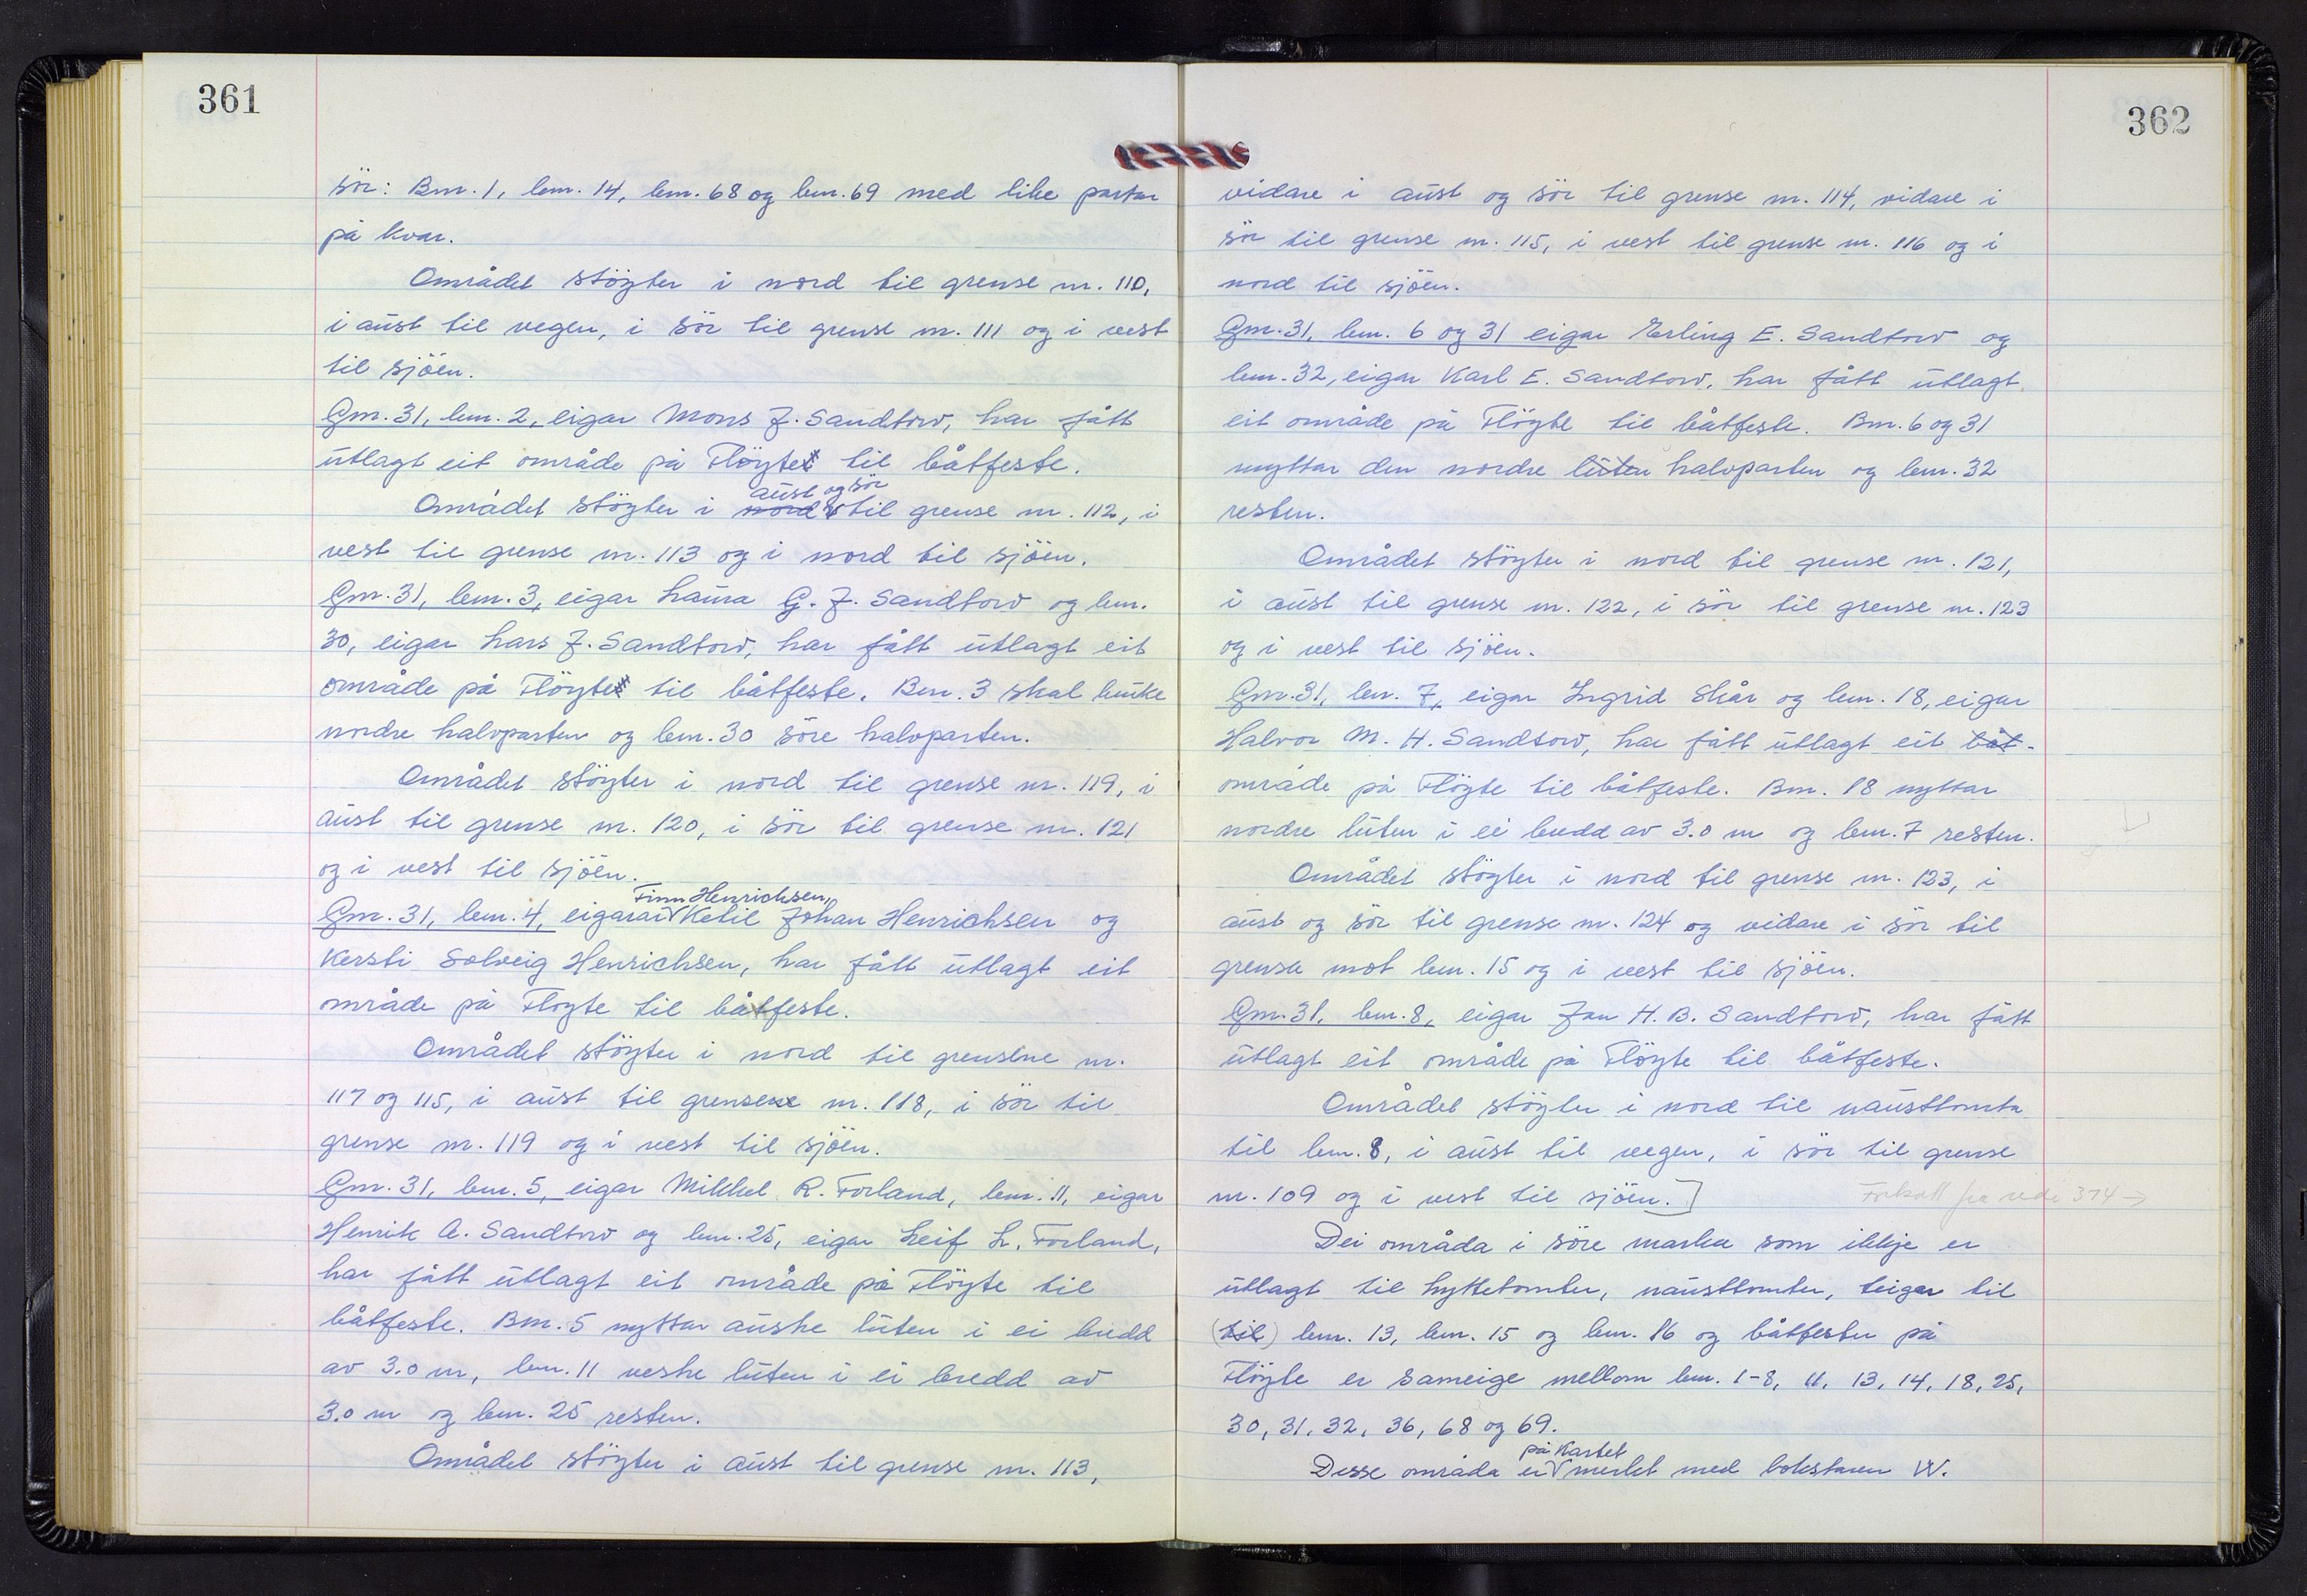 361
sör: Bnr. 1, bnr. 14, bnr. 68 og bnr. 69 med like partar
på kvar.
Området stöyter i nord til grense nr. 110,
i aust til vegen, i sör til grense nr. 111 og i vest
til sjöen.
Gnr. 31, bnr. 2, eigar Mons J. Sandtorv, har fått
utlagt eit område på Flöyte til båtfeste.
aust og sör
Området stöyter i nord til grense nr. 112, i
vest til grense nr. 113 og i nord til sjöen.
Gnr. 31, bnr. 3, eigar Laura G. J. Sandtorv og bnr.
30, eigar Lars J. Sandtorv, har fått utlagt eit
område på Flöyte til båtfeste. Bnr. 3 skal bruke
nordre halvparten og bnr. 30 söre halvparten.
Området stöyter i nord til grense nr. 119, i
aust til grense nr. 120, i sör til grense nr. 121
og i vest til sjöen.
Finn Henrichsen,
Gnr. 31, bnr. 4, eigarar Ketil Johan Henrichsen og
Kersti Solveig Henrichsen, har fått utlagt eit
område på Flöyte til båtfeste.
Området stöyter i nord til grensene nr.
117 og 115, i aust til grense nr. 118, i sör til
grense nr. 119 og i vest til sjöen.
Gnr. 31, bnr. 5, eigar Mikkel R. Forland, bnr. 11, eigar
Henrik A. Sandtorv og bnr. 25, eigar Leif L. Forland,
har fått utlagt eit område på Flöyte til
båtfeste. Bnr. 5 nyttar austre luten i ei bredd
av 3.0 m, bnr. 11 vestre luten i ei bredd av
3.0 m og bnr. 25 resten.
Området stöyter i aust til grense nr. 113,
362
vidare i aust og sör til grense nr. 114, vidare i
sör til grense nr. 115, i vest til grense nr. 116 og i
nord til sjöen.
Gnr. 31, bnr. 6 og 31 eigar Erling E. Sandtorv og
bnr. 32, eigar Karl E. Sandtorv, har fått utlagt
eit område på Flöyte til båtfeste. Bnr. 6 og 31
nyttar den nordre luten halvparten og bnr. 32
resten.
Området stöyter i nord til grense nr. 121,
i aust til grense nr. 122, i sör til grense nr. 123
og i vest til sjöen.
Gnr. 31, bnr. 7, eigar Ingrid Skår og bnr. 18, eigar
Halvor M. H. Sandtorv, har fått utlagt eit båt-
område på Flöyte til båtfeste. Bnr. 18 nyttar
nordre luten i ei bredd av 3.0 m og bnr. 7 resten.
Området stöyter i nord til grense nr. 123, i
aust og sör til grense nr. 124 og vidare i sör til
grense mot bnr. 15 og i vest til sjöen.
Gnr. 31, bnr. 8, eigar Jan H. B. Sandtorv, har fått
utlagt eit område på Flöyte til båtfeste.
Området stöyter i nord til nausttomta
til bnr. 8, i aust til vegen, i sör til grense
nr. 109 og i vest til sjöen.] 374 →
Dei områda i söre marka som ikkje er
utlagt til hyttetomter, nausttomter, teigar til
(til) bnr. 13, bnr. 15 og bnr. 16 og båtfester på
Flöyte er sameige mellom bnr. 1-8, 11, 13, 14, 18, 25,
30, 31, 32, 36, 68 og 69.
på kartet
Desse områda er merket med bokstaven W.